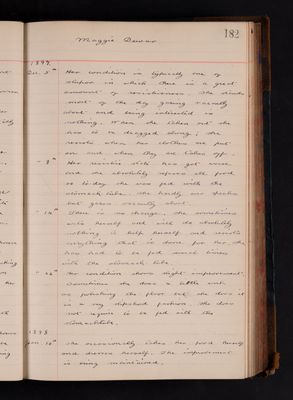 182
Maggie Dewar
1897.
Dec. 5th Her condition is typically one of
stupor in which there is a great
amount of resistiveness. She stands
most of the day gazing vacantly
about and being interested in
nothing. When she is taken out she
has to be dragged along; she
resists when her clothes are put
on and when they are taken off.
- 8th Her resistive state has got worse
and she absolutely refuses all food
so to-day she was fed with the
stomach tube. She hardly ever speaks
but gazes vacantly about.
- 14th There is no change. She sometimes
wets herself and will do absolutely
nothing to help herself and resists
everything that is done for her. She
has had to be fed several times
with the stomach tube.
- 26th Her condition shows slight improvement.
Sometimes she does a little work
in polishing the floor but she does it
in a very stupid fashion. She does
not require to be fed with the
stomach tube.
1898
Jan. 10th She occasionally takes her food herself
and dresses herself. The improvement
is being maintained.